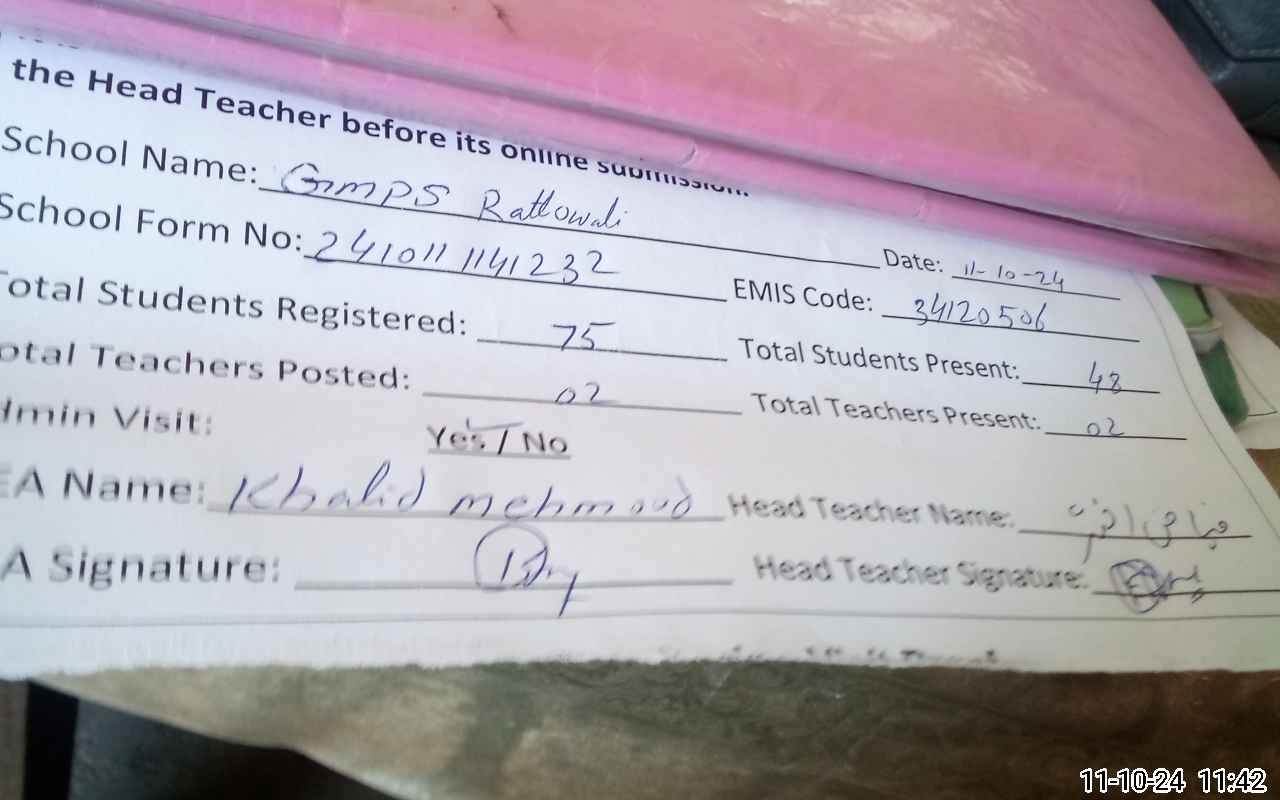 the Head Teacher before its online submission.
School Name: GMPS Rattowali
Date: 11-10-24
School Form No: 241011141232
EMIS Code: 34120506
Total Students Registered: 75
Total Students Present: 48
Total Teachers Posted: 02
Total Teachers Present: 02
Admin Visit: Yes / No
EA Name: Khalid mehmood
Head Teacher Name:
A Signature:
Head Teacher Signature:
11-10-24 11:42